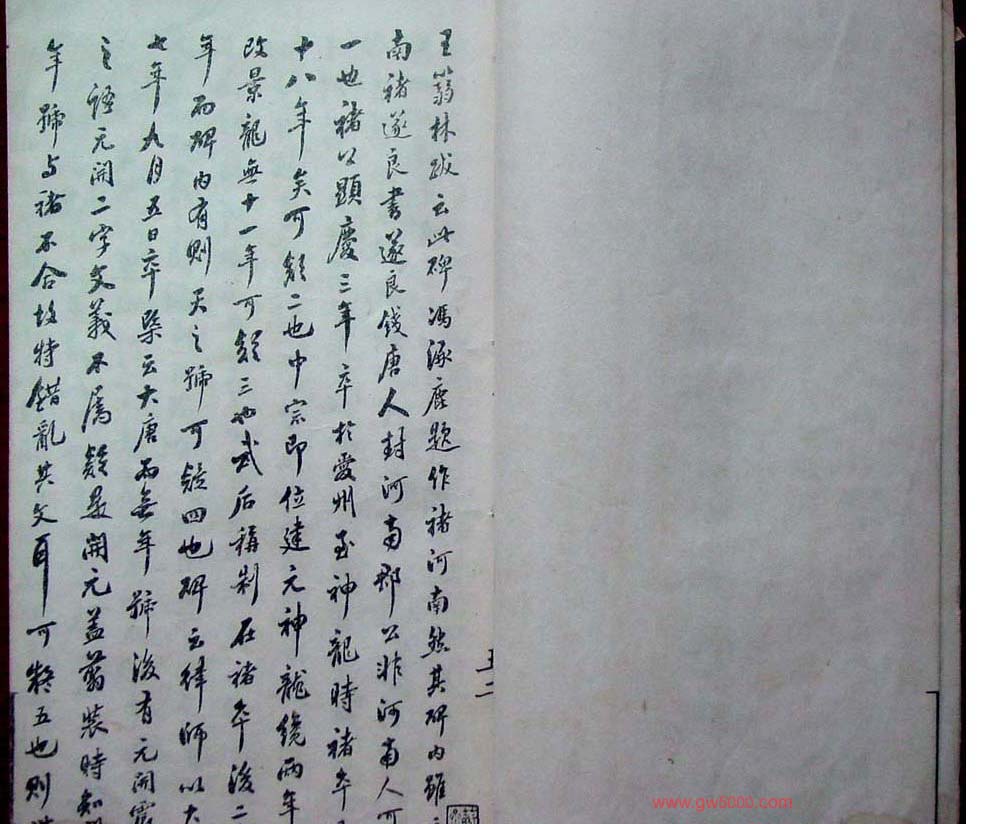 王蒻林跋云此碑馮涿鹿題作褚河南然其碑内雖
南褚遂良書遂良錢唐人封河南郡公非河南人可
一也褚公顯慶三年卒於愛州至神龍時褚卒
十八年矣可疑二也中宗即位建元神龍纔兩年
改景龍無十一年可疑三也武后稱制在褚卒後二
年而碑内有則天之號可疑四也碑云律師以大
七年九月五日卒槩云大唐而無年號後有元開
之語元開二字文義不屬疑是開元蓋蒻裝時知
年號与褚不合故特錯亂其文耳可疑五也則
五二
www.gw5000.com